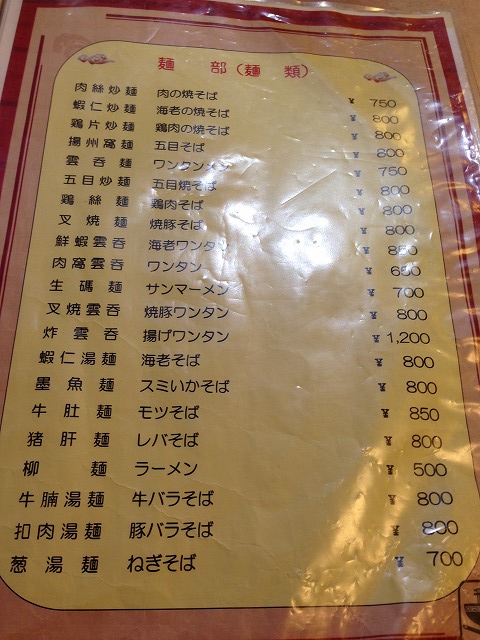 麺 部（麺 類）
肉絲炒麺 肉の焼そば ¥ 750
蝦仁炒麺 海老の焼そば ¥ 800
鶏片炒麺 鶏肉の焼そば ¥ 800
揚州窩麺 五目そば ¥ 800
雲呑麺 ワンタンメン ¥ 750
五目炒麺 五目焼そば ¥ 800
鶏絲麺 鶏肉そば ¥ 800
叉焼麺 焼豚そば ¥ 800
鮮蝦雲呑 海老ワンタン ¥ 850
肉窩雲呑 ワンタン ¥ 650
生碼麺 サンマーメン ¥ 700
叉焼雲呑 焼豚ワンタン ¥ 800
炸雲呑 揚げワンタン ¥ 1,200
蝦仁湯麺 海老そば ¥ 800
墨魚麺 スミいかそば ¥ 800
牛肚麺 モツそば ¥ 850
猪肝麺 レバそば ¥ 800
柳麺 ラーメン ¥ 500
牛腩湯麺 牛バラそば ¥ 800
扣肉湯麺 豚バラそば ¥ 800
葱湯麺 ねぎそば ¥ 700